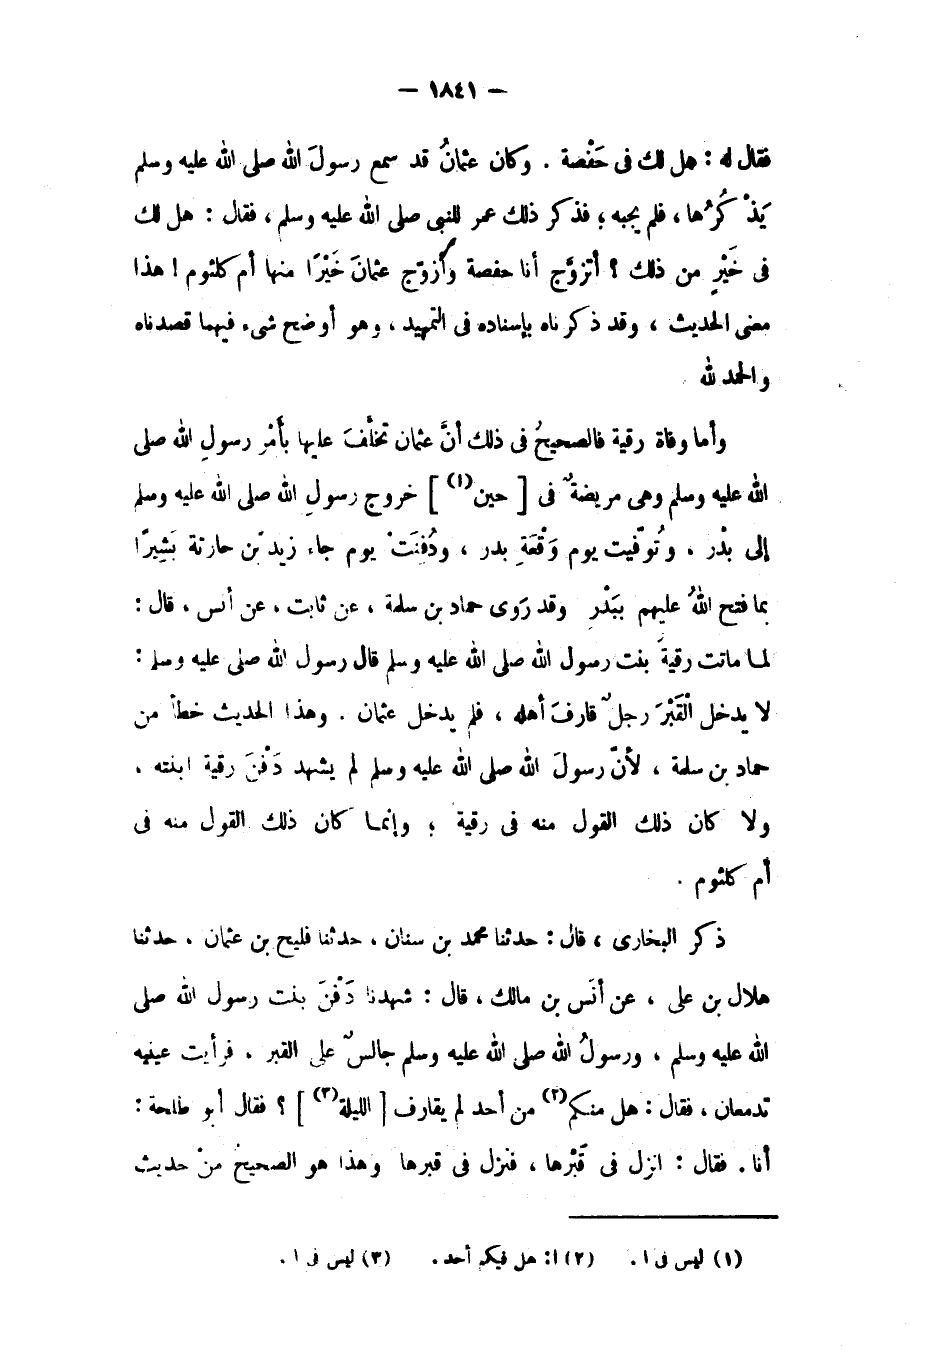 — ١٨٤١ —
فقال له : هل لك فى حَفْصة . وكان عثمانُ قد سمع رسولَ الله صلى الله عليه وسلم
يَذْكُرُها ، فلم يجبه ؛ فذكر ذلك عمر للنبى صلى الله عليه وسلم ، فقال : هل لك
فى خَيْرٍ من ذلك ؟ أتزوَّج أنا حفصة وأزوّج عثمانَ خَيْرًا منها أم كلثوم ! هذا
معنى الحديث ، وقد ذكرناه بإسناده فى التمهيد ، وهو أوضح شىء فيما قصدناه
والحمد لله
وأما وفاة رقية فالصحيحُ فى ذلك أنَّ عثمان تخلَّفَ عليها بأَمْرِ رسولِ الله صلى
الله عليه وسلم وهى مريضةٌ فى [ حين(١) ] خروج رسولِ الله صلى الله عليه وسلم
إلى بَدْر . وتُوفّيت يوم وَقْعَةِ بدر ، ودُفِنَتْ يوم جاء زيد بْن حارثة بَشِيرًا
بما فتح اللهُ عليهم ببَدْرِ وقد رَوى حماد بن سلمة ، عن ثابت ، عن أنس ، قال :
لما ماتت رقيةَ بنت رسول الله صلى الله عليه وسلم قال رسول الله صلى عليه وسلم :
لا يدخل الْقَبْرَ رجلٌ قارفَ أهله ، فلم يدخل عثمان . وهذا الحديث خطأ من
حماد بن سلمة ، لأنّ رسولَ الله صلى الله عليه وسلم لم يشهد دَفْنَ رقية ابنته ،
ولا كان ذلك القول منه فى رقية ؛ وإنما كان ذلك القول منه فى
أم كلثوم .
ذكر البخارى ، قال : حدثنا محمد بن سنان ، حدثنا فليح بن عثمان ، حدثنا
هلال بن على ، عن أنَس بن مالك ، قال : شهدنا دَفْنَ بنت رسول الله صلى
الله عليه وسلم ، ورسولُ الله صلى الله عليه وسلم جالسٌ على القبر ، فرأيت عينيه
تدمعان ، فقال : هل منكم(٢) من أحد لم يقارف [ الليلة(٣) ] ؟ فقال أبو طلحة :
أنا . فقال : انزل فى قَبْرها ، فنزل فى قبرها وهذا هو الصحيحُ منْ حديث
(١) ليس فى ا . (٢) ا : هل فيكم أحد . (٣) ليس فى ا .